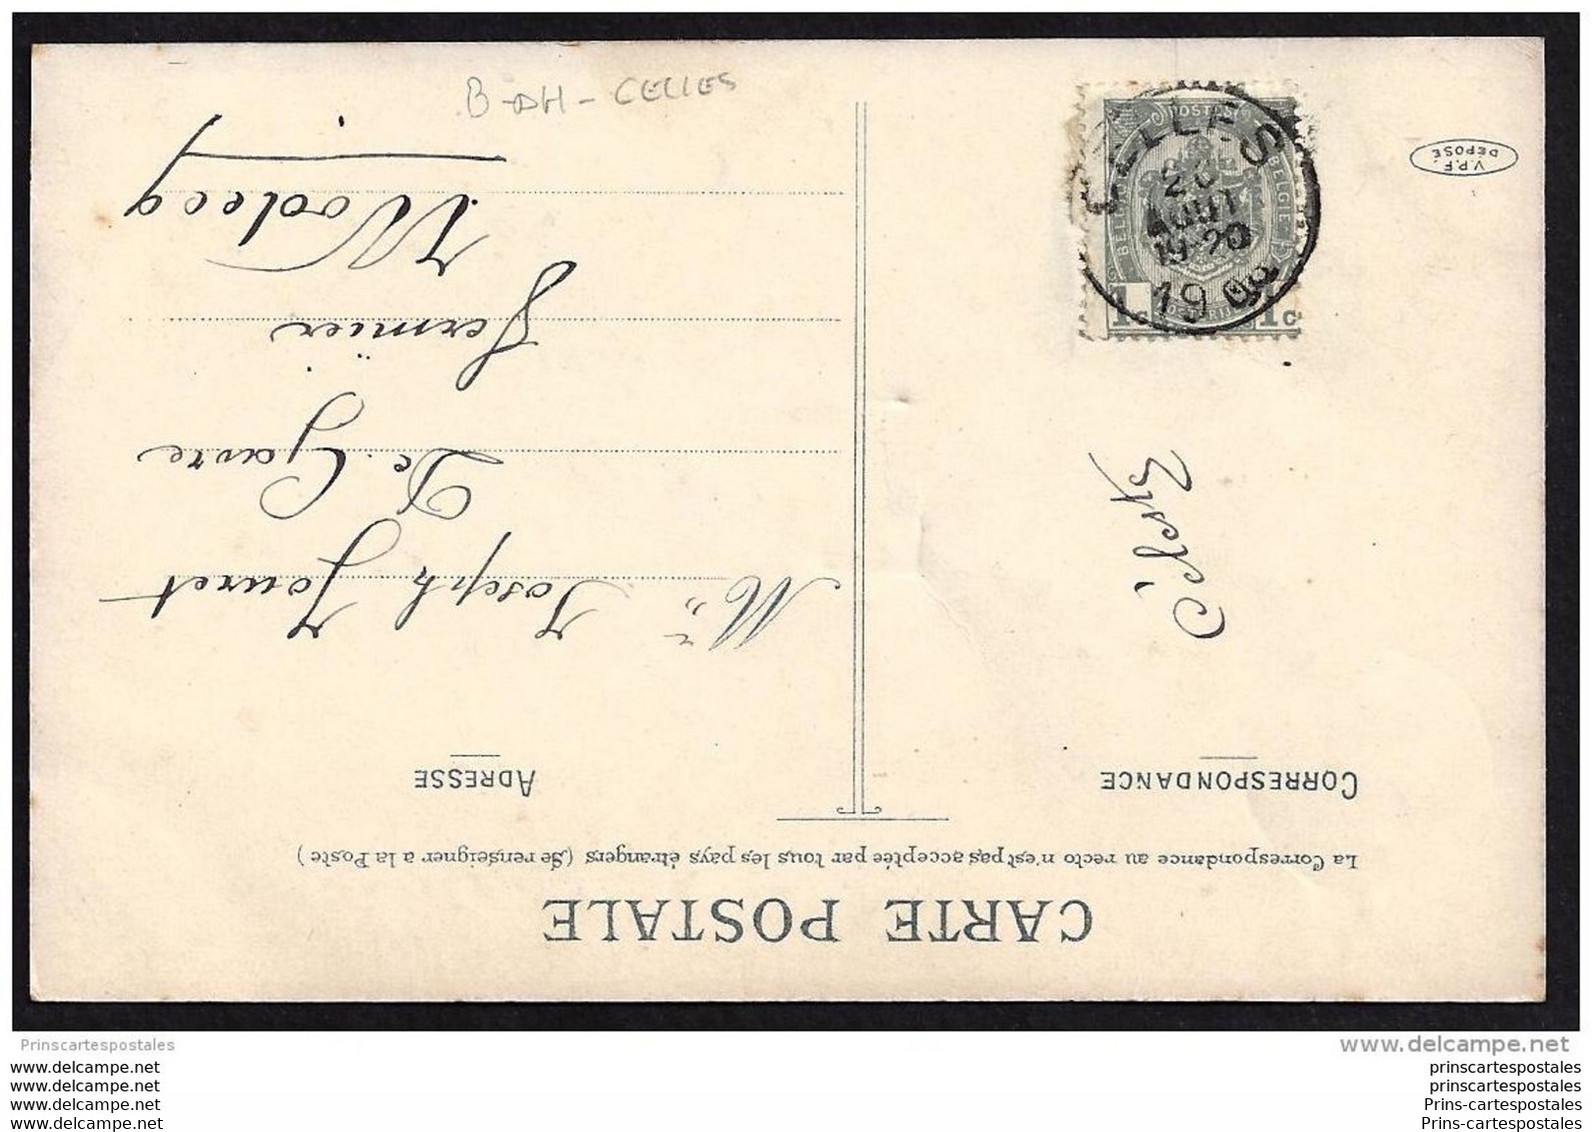 B-DH-CELLES
CARTE POSTALE
La Correspondance au recto n'est pas acceptée par tous les pays étrangers (Se renseigner a la Poste)
CORRESPONDANCE
ADRESSE
Joseph Jouret
De Gavre
Fermier
Wodecq
V.P.F.
DEPOSÉ
CELLES
AOUT
19-20
19
POSTES
BELGIE
1c
1c
Prinscartespostales
www.delcampe.net
www.delcampe.net
www.delcampe.net
www.delcampe.net
www.delcampe.net
prinscartespostales
prinscartespostales
Prins-cartespostales
Prins-cartespostales